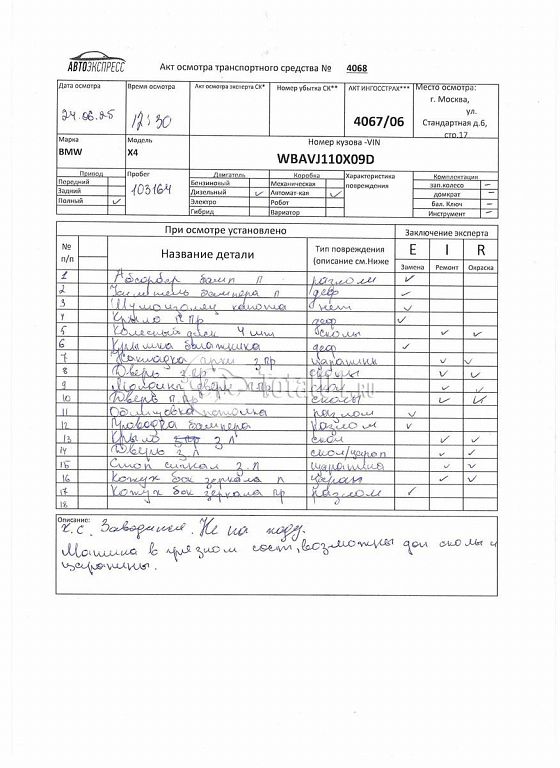 АВТОЭКСПРЕСС
Акт осмотра транспортного средства № 4068
Дата осмотра
Время осмотра
Акт осмотра эксперта СК*
Номер убытка СК**
АКТ ИНГОССТРАХ***
Место осмотра:
г. Москва,
ул.
Стандартная д.6,
стр.17
24.06.25
12:30
4067/06
Марка
Модель
Номер кузова -VIN
BMW
X4
WBAVJ110X09D
Привод
Пробег
Двигатель
Коробка
Характеристика
повреждения
Комплектация
Передний
Бензиновый
Механическая
зап.колесо –
Задний
103164
Дизельный ✓
Автомат-кая ✓
домкрат –
Полный ✓
Электро
Робот
бал. Ключ –
Гибрид
Вариатор
Инструмент –
При осмотре установлено
Заключение эксперта
№
п/п
Название детали
Тип повреждения
(описание см.Ниже
E I R
Замена Ремонт Окраска
1 Абсорбер бамп п разлом ✓
2 Усилитель бампера п деф ✓
3 капота нет ✓
4 Крыло п пр деф ✓
5 Колесный диск 4 шт сколы ✓ ✓
6 Крышка багажника деф ✓
7 Накладка арки з.пр царапины ✓ ✓
8 Дверь з.пр ✓ ✓
9 Молдинг двери пр скол ✓ ✓
10 Дверь п.пр сколы ✓ ✓
11 Облицовка потолка разлом ✓
12 Проводка бампера разлом ✓
13 Крыло з л скол ✓ ✓
14 Дверь з л скол/царап ✓ ✓
15 Стоп сигнал з.л царапина ✓ ✓
16 Кожух бок зеркала л царап ✓ ✓
17 Кожух бок зеркала пр разлом ✓
18
Описание:
х.с. Заводится. Не на ходу.
Машина в грязном сост, возможны доп сколы и
царапины.